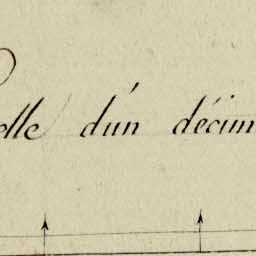 elle d'un décim